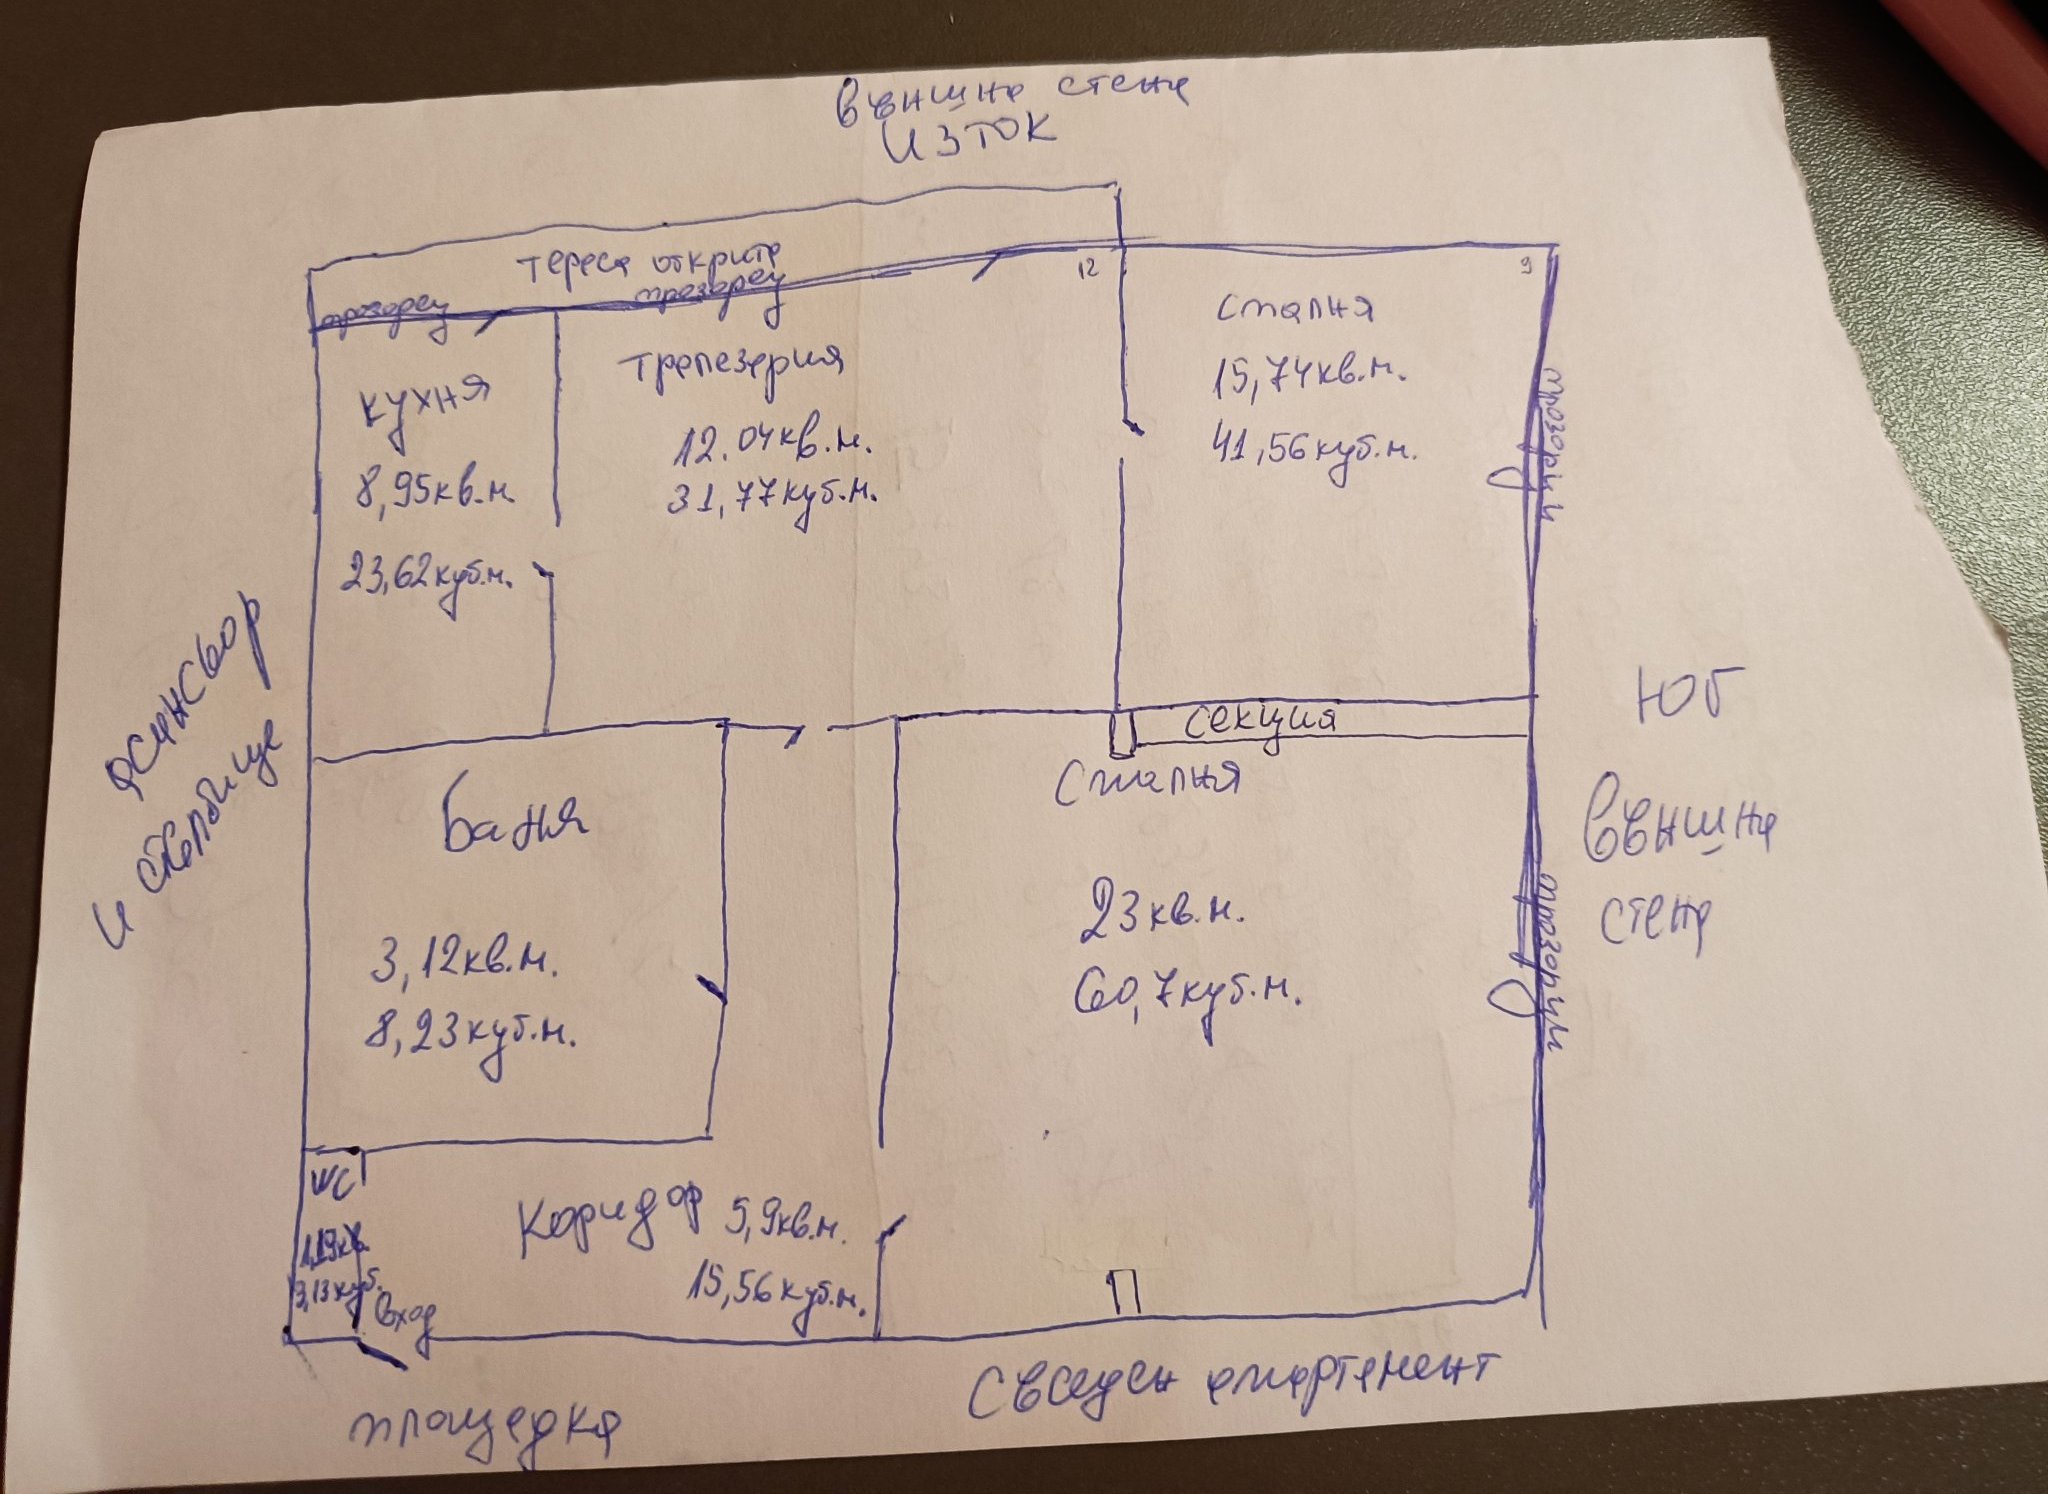 външна стена
ИЗТОК
тереса открита
прозорец
прозорец
12
9
кухня
8,95кв.м.
23,62куб.м.
трапезария
12.04кв.м.
31,77куб.м.
спалня
15,74кв.м.
41,56куб.м.
прозорци
асансьор
и стълбище
Юг
външна
стена
секция
Баня
3,12кв.м.
8,23куб.м.
Спалня
23кв.м.
60,7куб.м.
прозорци
WC
1,19кв.
3,13куб.
Коридор 5,9кв.м.
15,56куб.м.
вход
площадка
Съседен апартамент